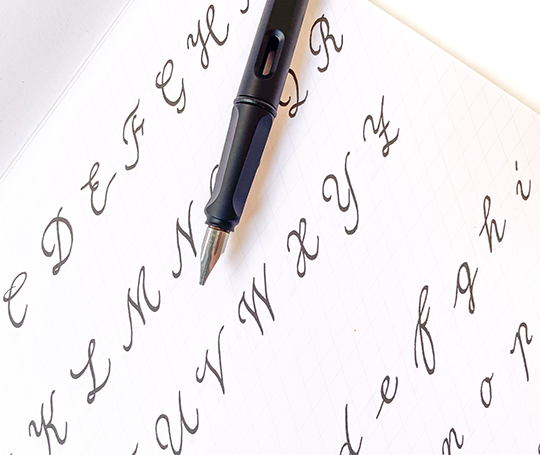 C D E F G H
K L M N Q R
U V W X Y Z
d e f g h i
n o p